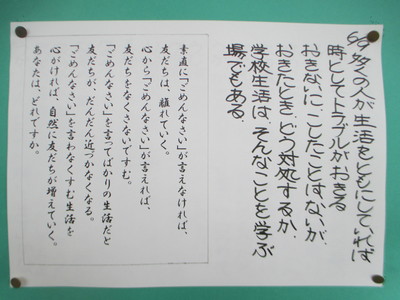 6/9 多くの人が生活をともにしていれば
時としてトラブルがおきる
おきないに、こしたことはないが、
おきたとき、どう対処するか、
学校生活は、そんなことを学ぶ
場でもある。
素直に「ごめんなさい」が言えなければ、
友だちは、離れていく。
心から「ごめんなさい」が言えれば、
友だちをなくさないですむ。
「ごめんなさい」を言ってばかりの生活だと
友だちが、だんだん近づかなくなる。
「ごめんなさい」を言わなくすむ生活を
心がければ、自然に友だちが増えていく。
あなたは、どれですか。